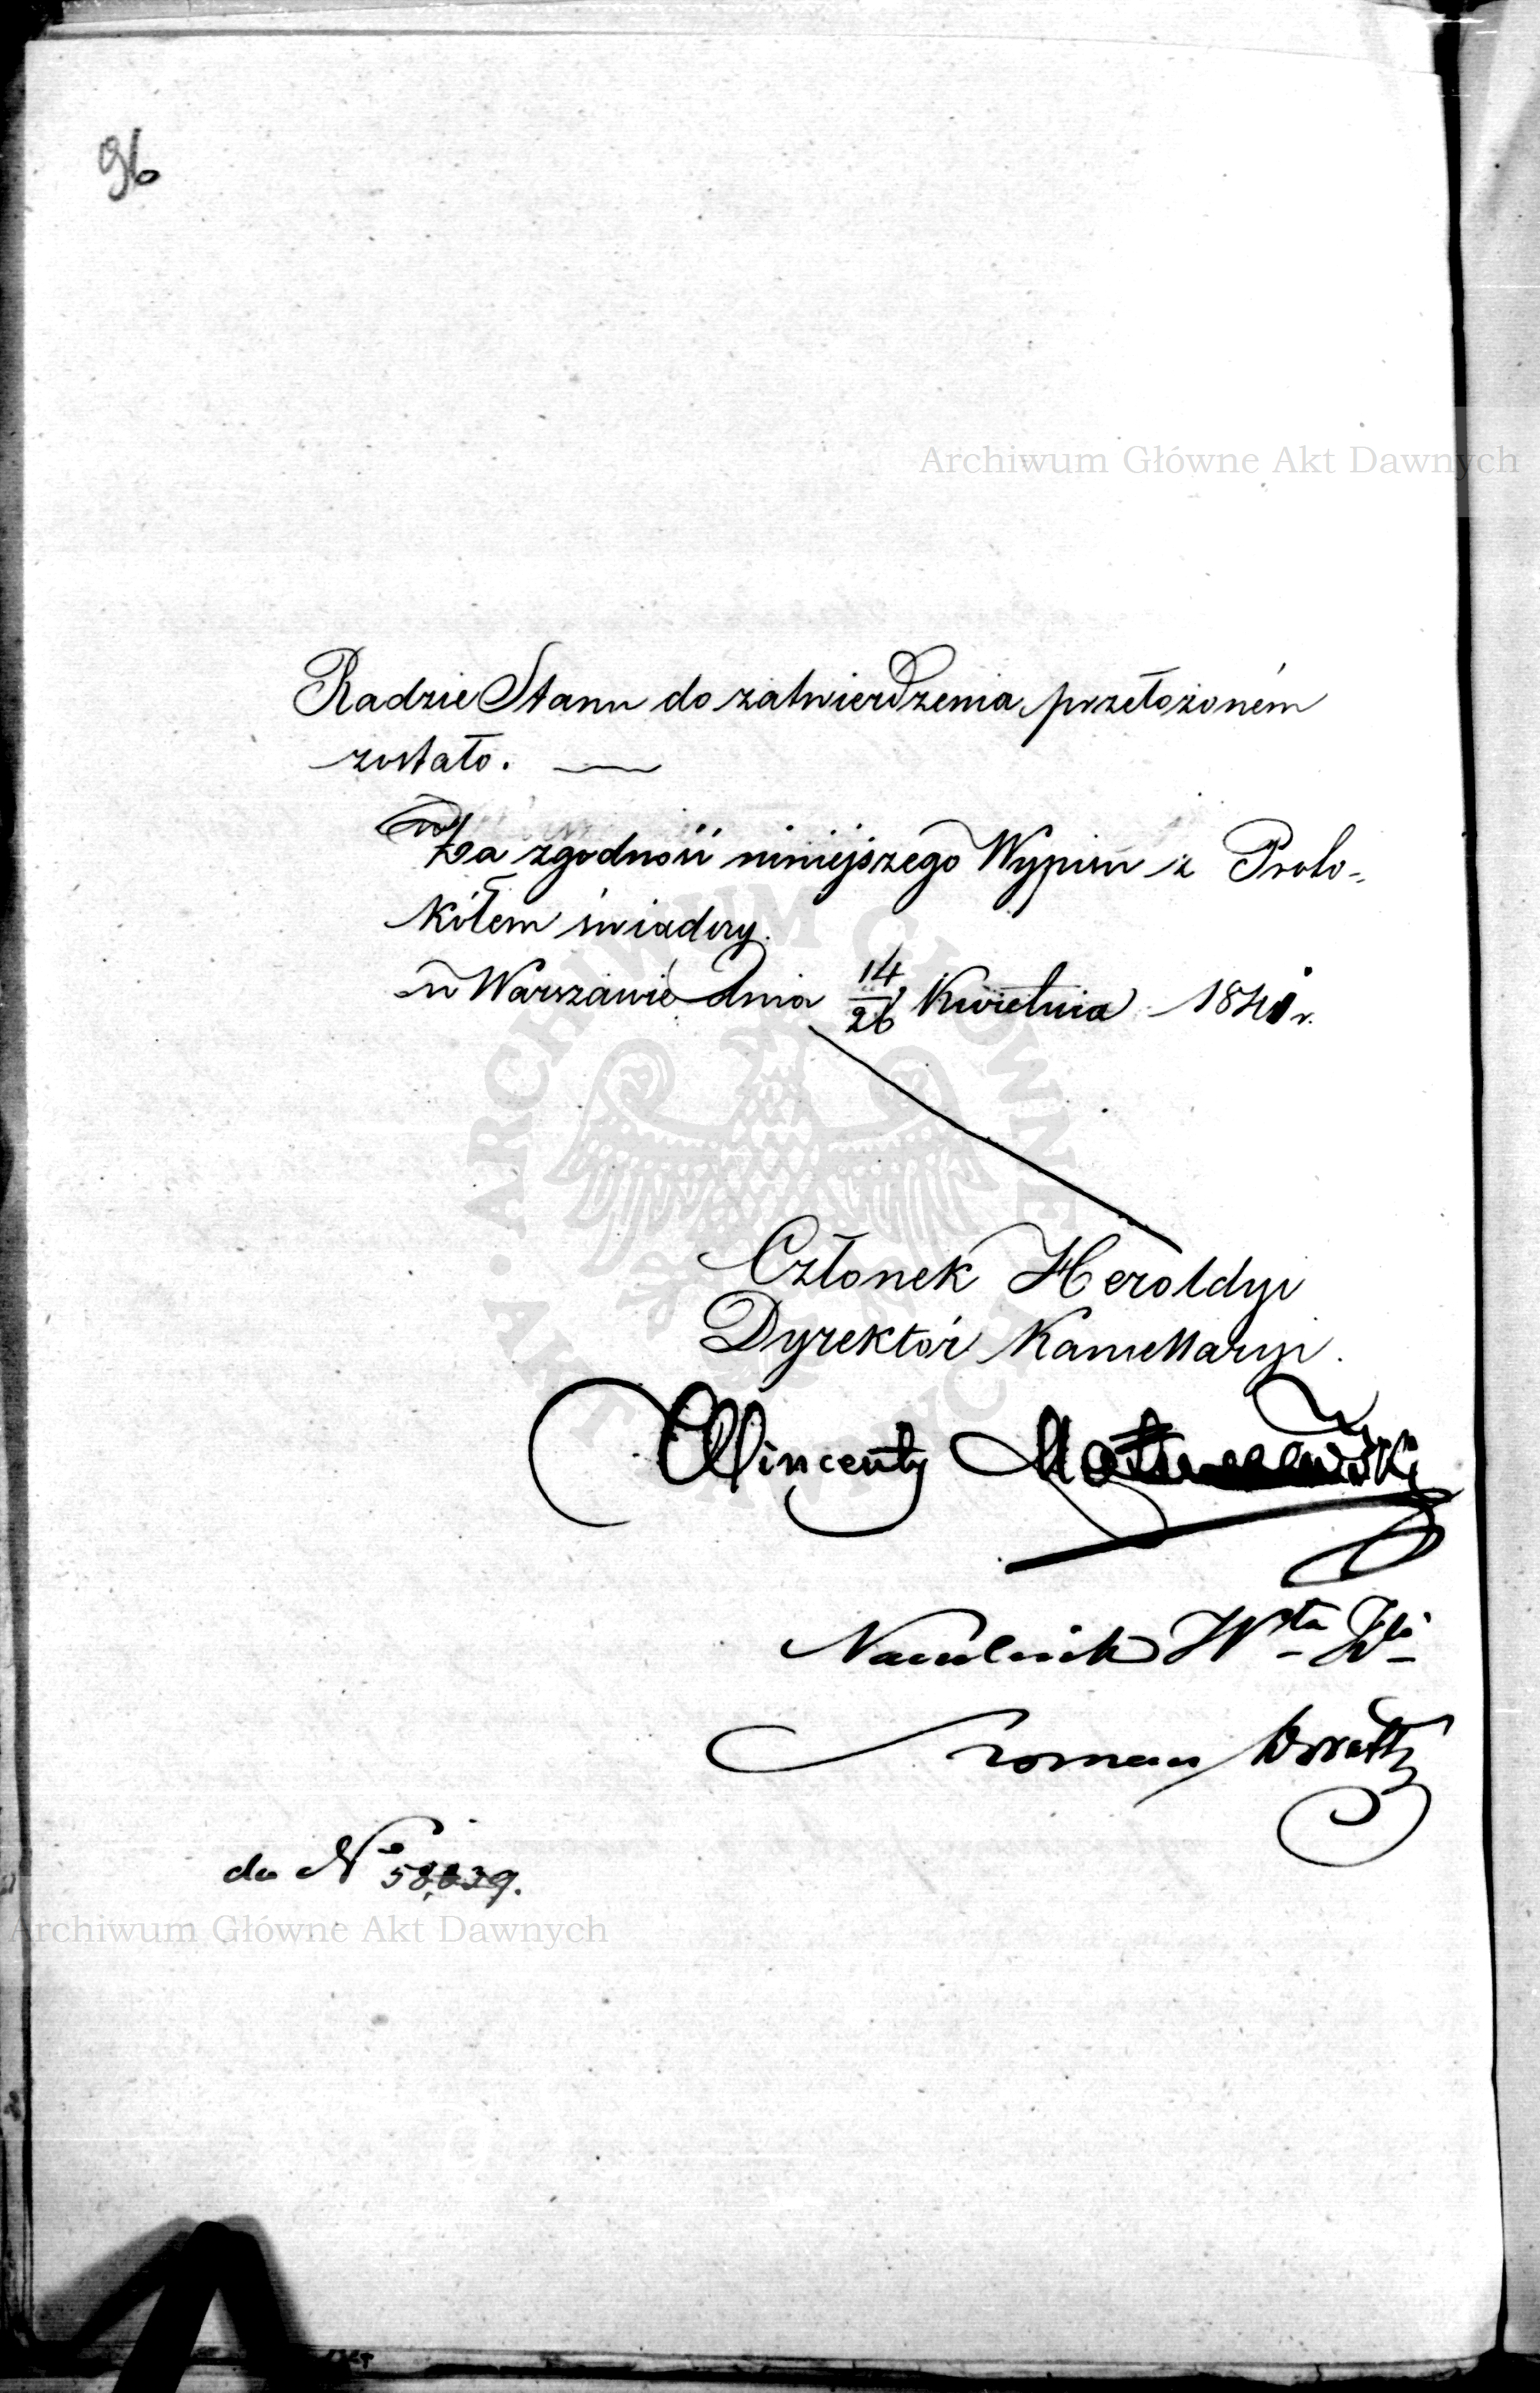 96
Archiwum Główne Akt Dawnych
Radzie Stanu do zatwierdzenia przełożoném
zostało. —
Za zgodność niniejszego Wypisu z Proto-
kółem świadczy.
w Warszawie dnia 14/26 Kwietnia 1841 r.
Członek Heroldyi
Dyrektór Kancellaryi.
Wincenty
Naczelnik Wła
Roman
do No 58,839.
Archiwum Główne Akt Dawnych
ARCHIWUM GŁÓWNE AKT DAWNYCH